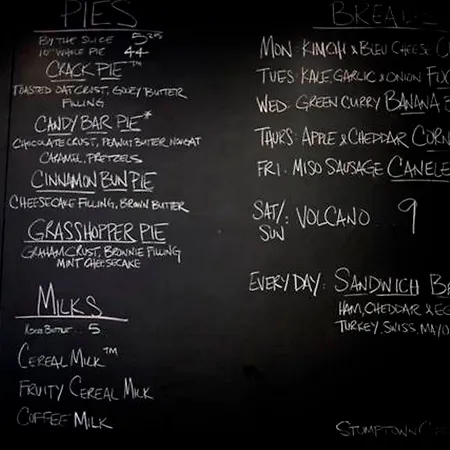 PIES
BY THE SLICE 5.25
10" WHOLE PIE 44
CRACK PIE™
TOASTED OAT CRUST, GOOEY BUTTER
FILLING
CANDY BAR PIE*
CHOCOLATE CRUST, PEANUT BUTTER NOUGAT
CARAMEL, PRETZELS
CINNAMON BUN PIE
CHEESECAKE FILLING, BROWN BUTTER
GRASSHOPPER PIE
GRAHAM CRUST, BROWNIE FILLING
MINT CHEESECAKE
MILKS
5
CEREAL MILK™
FRUITY CEREAL MILK
COFFEE MILK
BREA
MON: KIMCHI & BLEU CHEESE C
TUES: KALE, GARLIC & ONION FO
WED: GREEN CURRY BANANA B
THURS: APPLE & CHEDDAR CORN
FRI: MISO SAUSAGE CANELE
SAT/SUN: VOLCANO 9
EVERY DAY: SANDWICH BR
HAM, CHEDDAR & EG
TURKEY, SWISS, MAYO
STUMPTOWN